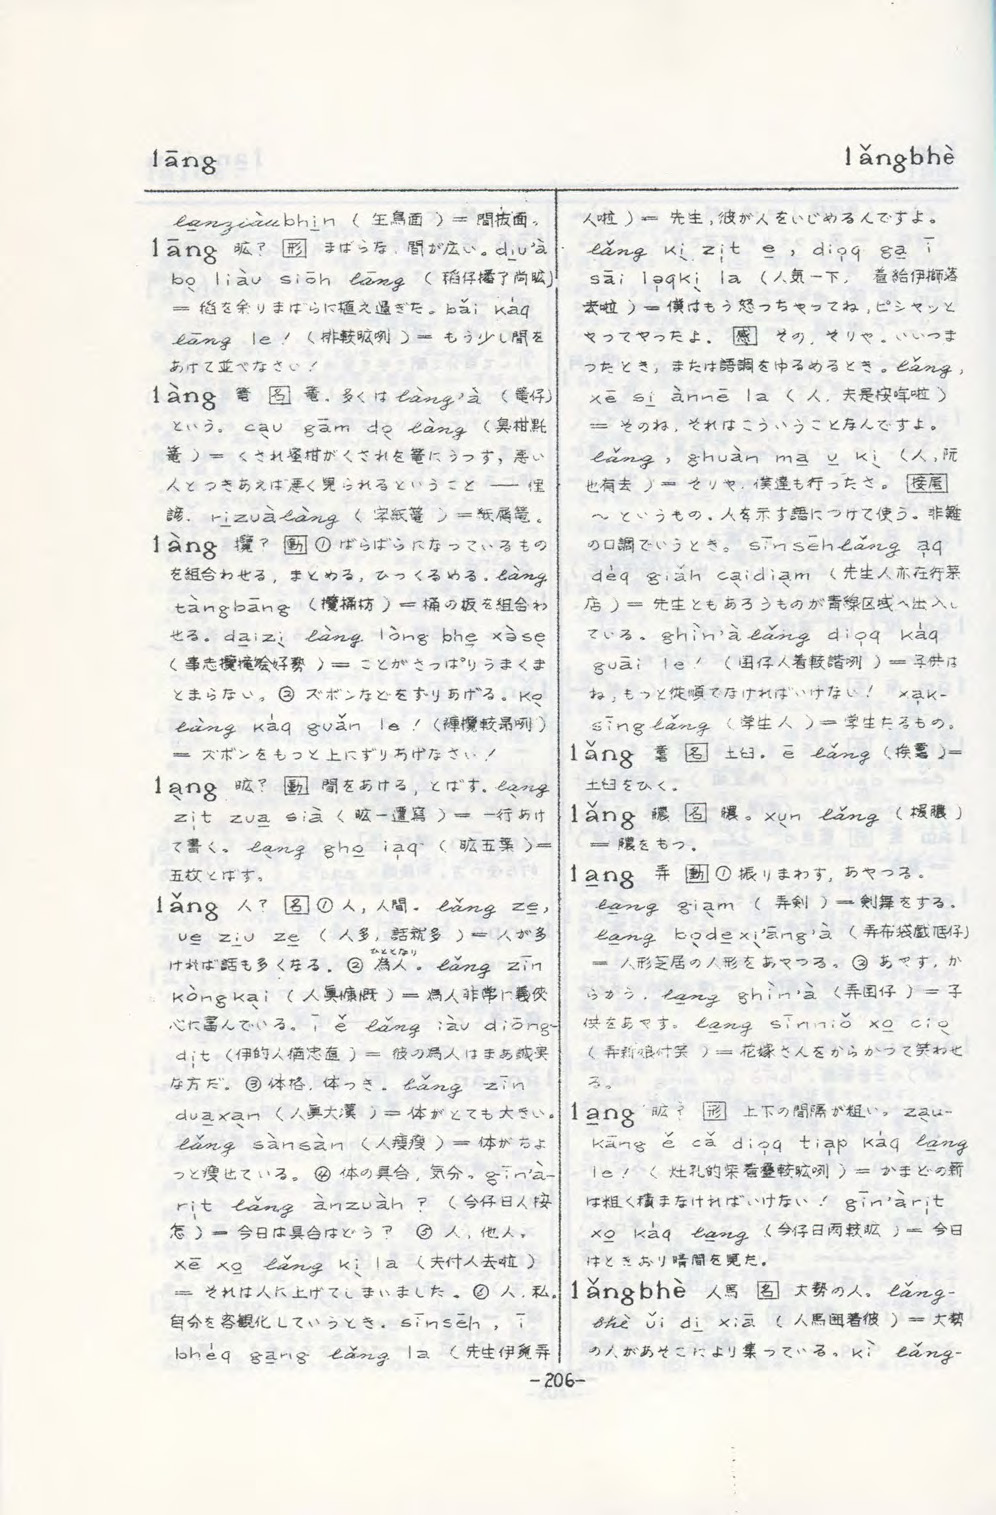 lāng
lǎngbhè
lanziàubhin ( 生鳥面 ) = 間抜面。
lāng 㫰? [形] まばらな, 間が広い。diu'à
bo liàu siōh lāng ( 稻仔播了尚㫰)
= 稻を余りまばらに植え過ぎた。bǎi kàq
lāng le ! ( 排較㫰咧 ) = もう少し間を
あけて並べなさい !
làng 籠 [名] 篭。多くは làng'à ( 篭仔)
という。cau gām do làng ( 臭柑黜
篭 ) = くされ蜜柑がくされを篭にうつす, 悪い
人とつきあえば悪く見られるということ ── 俚
諺. rizuàlàng ( 字紙篭 ) = 紙屑篭。
làng 攏? [動] ① ばらばらになっているもの
を組合わせる, まとめる, ひっくるめる. làng
tàngbāng ( 攏桶枋 ) = 桶の板を組合わ
せる。daizi làng lòng bhe xàse
( 事志攏攏 好勢 ) = ことがさっぱりうまくま
とまらない。② ズボンなどをずりあげる。ko
làng kàq guǎn le ! ( 褲攏較昂咧 )
= ズボンをもっと上にずりあげなさい !
lang 㫰? [動] 間をあける, とばす. lang
zit zua sià ( 㫰一遭寫 ) = 一行あけ
て書く。lang gho iaq ( 㫰五葉 )=
五枚とばす。
lǎng 人? [名] ① 人, 人間. lǎng ze,
ue ziu ze ( 人多, 話就多 ) = 人が多
ければ話も多くなる. ② 為人(ひととなり)。lǎng zīn
kòngkai ( 人眞慷慨 ) = 為人非常に義俠
心に富んでいる。ī ě lǎng iàu diōng-
dit (伊的人猶忠直 ) = 彼の為人はまあ誠実
な方だ。③ 体格, 体つき. lǎng zīn
duaxan ( 人眞大漢 ) = 体がとても大きい。
lǎng sànsàn (人瘦瘦 ) = 体がちょ
っと瘦せている。④ 体の具合, 気分。gīn'à-
rit lǎng ànzuàh ? ( 今仔日人按
怎 ) = 今日は具合はどう? ⑤ 人, 他人。
xē xo lǎng ki la ( 夫付人去啦 )
= それは人に上げてしまいました。⑥ 人, 私。
自分を客観化していうとき. sīnsēh , ī
bhéq gang lǎng la ( 先生伊 弄
人啦 ) = 先生, 彼が人をいじめるんですよ。
lǎng ki zit e , dioq ga ī
sāi loqki la (人気一下, 着給伊獅落
去啦 ) = 僕はもう怒っちゃってね, ピシャッと
やってやったよ. [感] その, そりゃ。いいつま
ったとき, または語調をゆるめるとき。lǎng ,
xē si ànnē la ( 人, 夫是按 啦 )
= そのね, それはこういうことなんですよ。
lǎng , ghuàn ma u ki (人,阮
也有去 ) = そりゃ, 僕達も行ったさ。[接尾]
～というもの. 人を示す語につけて使う. 非難
の口調でいうとき。sīnsēhlǎng aq
déq giāh caidiam (先生人亦在行菜
店 ) = 先生ともあろうものが青線区域へ出入し
ている。ghìn'àlǎng dioq kàq
guāi le ! (囝仔人着較 咧 ) = 子供は
ね, もっと従順でなければいけない ! xak-
sīnglǎng ( 学生人 ) = 学生たるもの。
lǎng 礱 [名] 土臼. ē lǎng (挨礱 )=
土臼をひく.
lǎng 膿 [名] 膿。xun lǎng ( 膿 )
= 膿をもつ.
lang 弄 [動] ① 振りまわす, あやつる。
lang giam ( 弄剣 ) = 剣舞をする.
lang bodexi'āng'à (弄布袋戯尫仔)
= 人形芝居の人形をあやつる。② あやす, か
らかう. lang ghìn'à (弄囝仔 ) = 子
供をあやす。lang sīnniǒ xo cio
( 弄新娘付笑 ) = 花嫁さんをからかって笑わせ
る。
lang 㫰? [形] 上下の間隔が粗い. zau-
kāng ě cǎ dioq tiap kàq lang
le ! ( 灶孔的柴着疊較㫰咧 ) = かまどの薪
は粗く積まなければいけない ! gīn'àrit
xo kàq lang (今仔日雨較㫰 ) = 今日
はときおり晴間を見た.
lǎngbhè 人馬 [名] 大勢の人。lǎng-
bhè ǔi di xiā ( 人馬囲着彼 ) = 大勢
の人があそこにより集っている。kì lǎng-
-206-